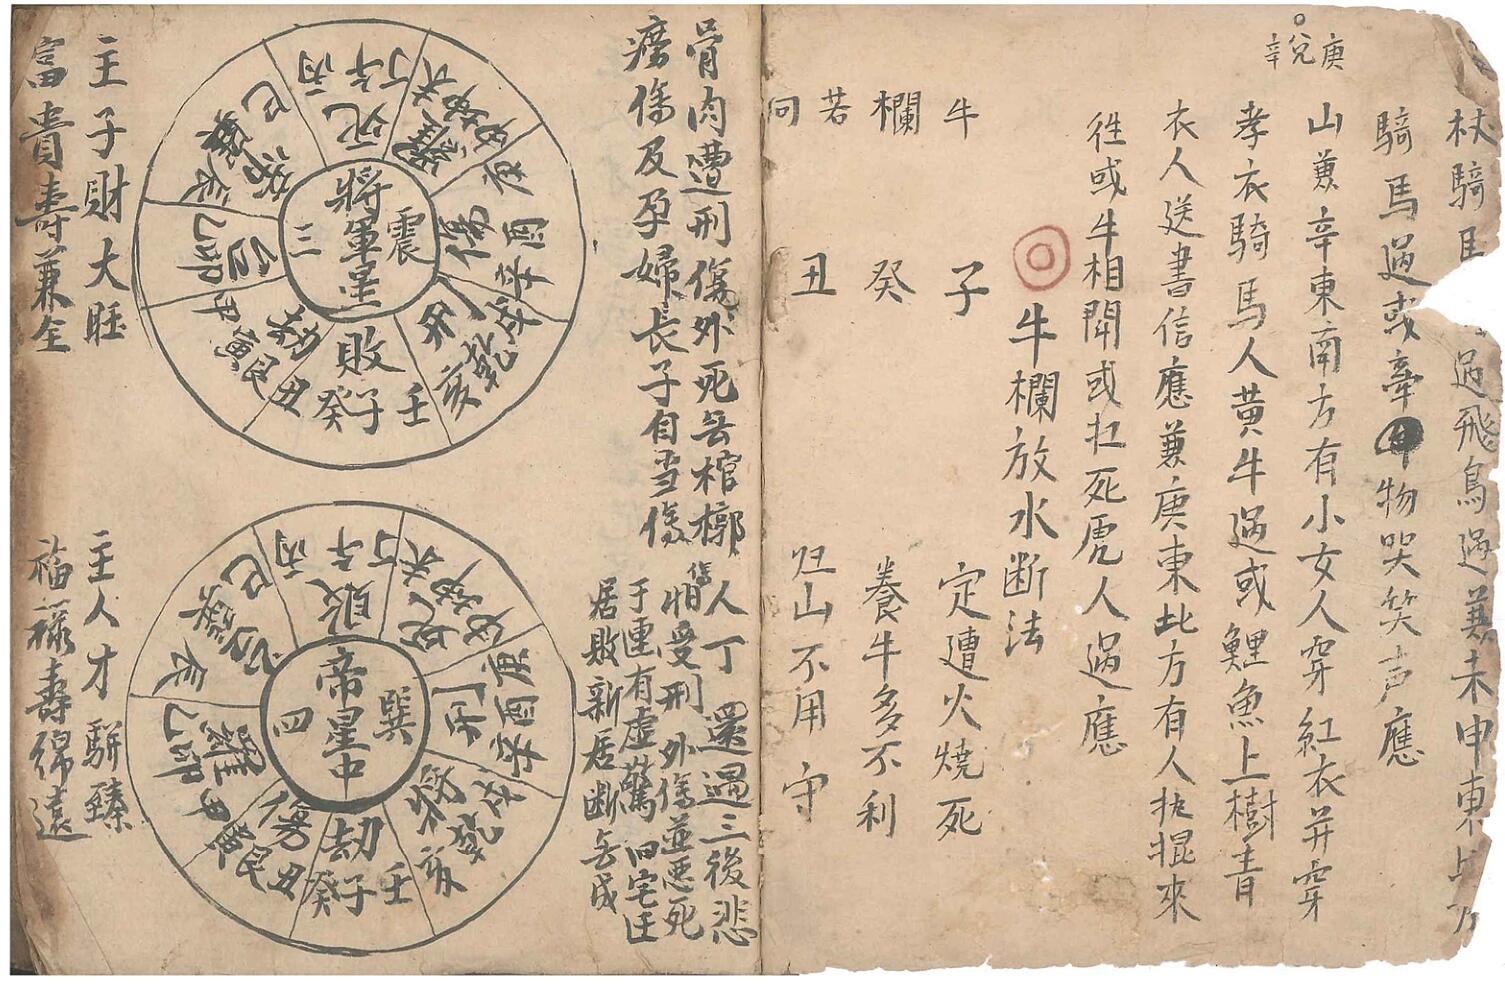 杖騎馬過飛鳥過兼未申東
騎馬過或牽牛物哭笑声應
庚
兌
辛
山兼辛東南方有小女人穿紅衣并穿
孝衣騎馬人黄牛過或鯉魚上樹青
衣人送書信應兼庚東北方有人执棍來
徃或牛相鬥或扛死虎人過應
牛欄放水断法
牛 子 定遭火燒死
欄 癸 養牛多不利
若 丑 丑山不用守
向
骨肉遭刑傷外死各棺槨
瘧傷及孕婦長子自当傷
人丁還過三後悲
怕受刑外傷並恶死
傷
于連有虚驚旧宅
居敗新居断各成
震
將軍星
三
丙午丁
死
未坤申
庚酉辛
傷
戌乾亥
刑
壬子癸
敗
丑艮寅
甲卯乙
辰巽巳
主子財大旺
富貴壽兼全
巽
帝星中
四
丙午丁
敗
未坤申
死
庚酉辛
刑
戌乾亥
壬子癸
劫
丑艮寅
傷
甲卯乙
辰巽巳
主人才駢臻
福禄壽綿遠